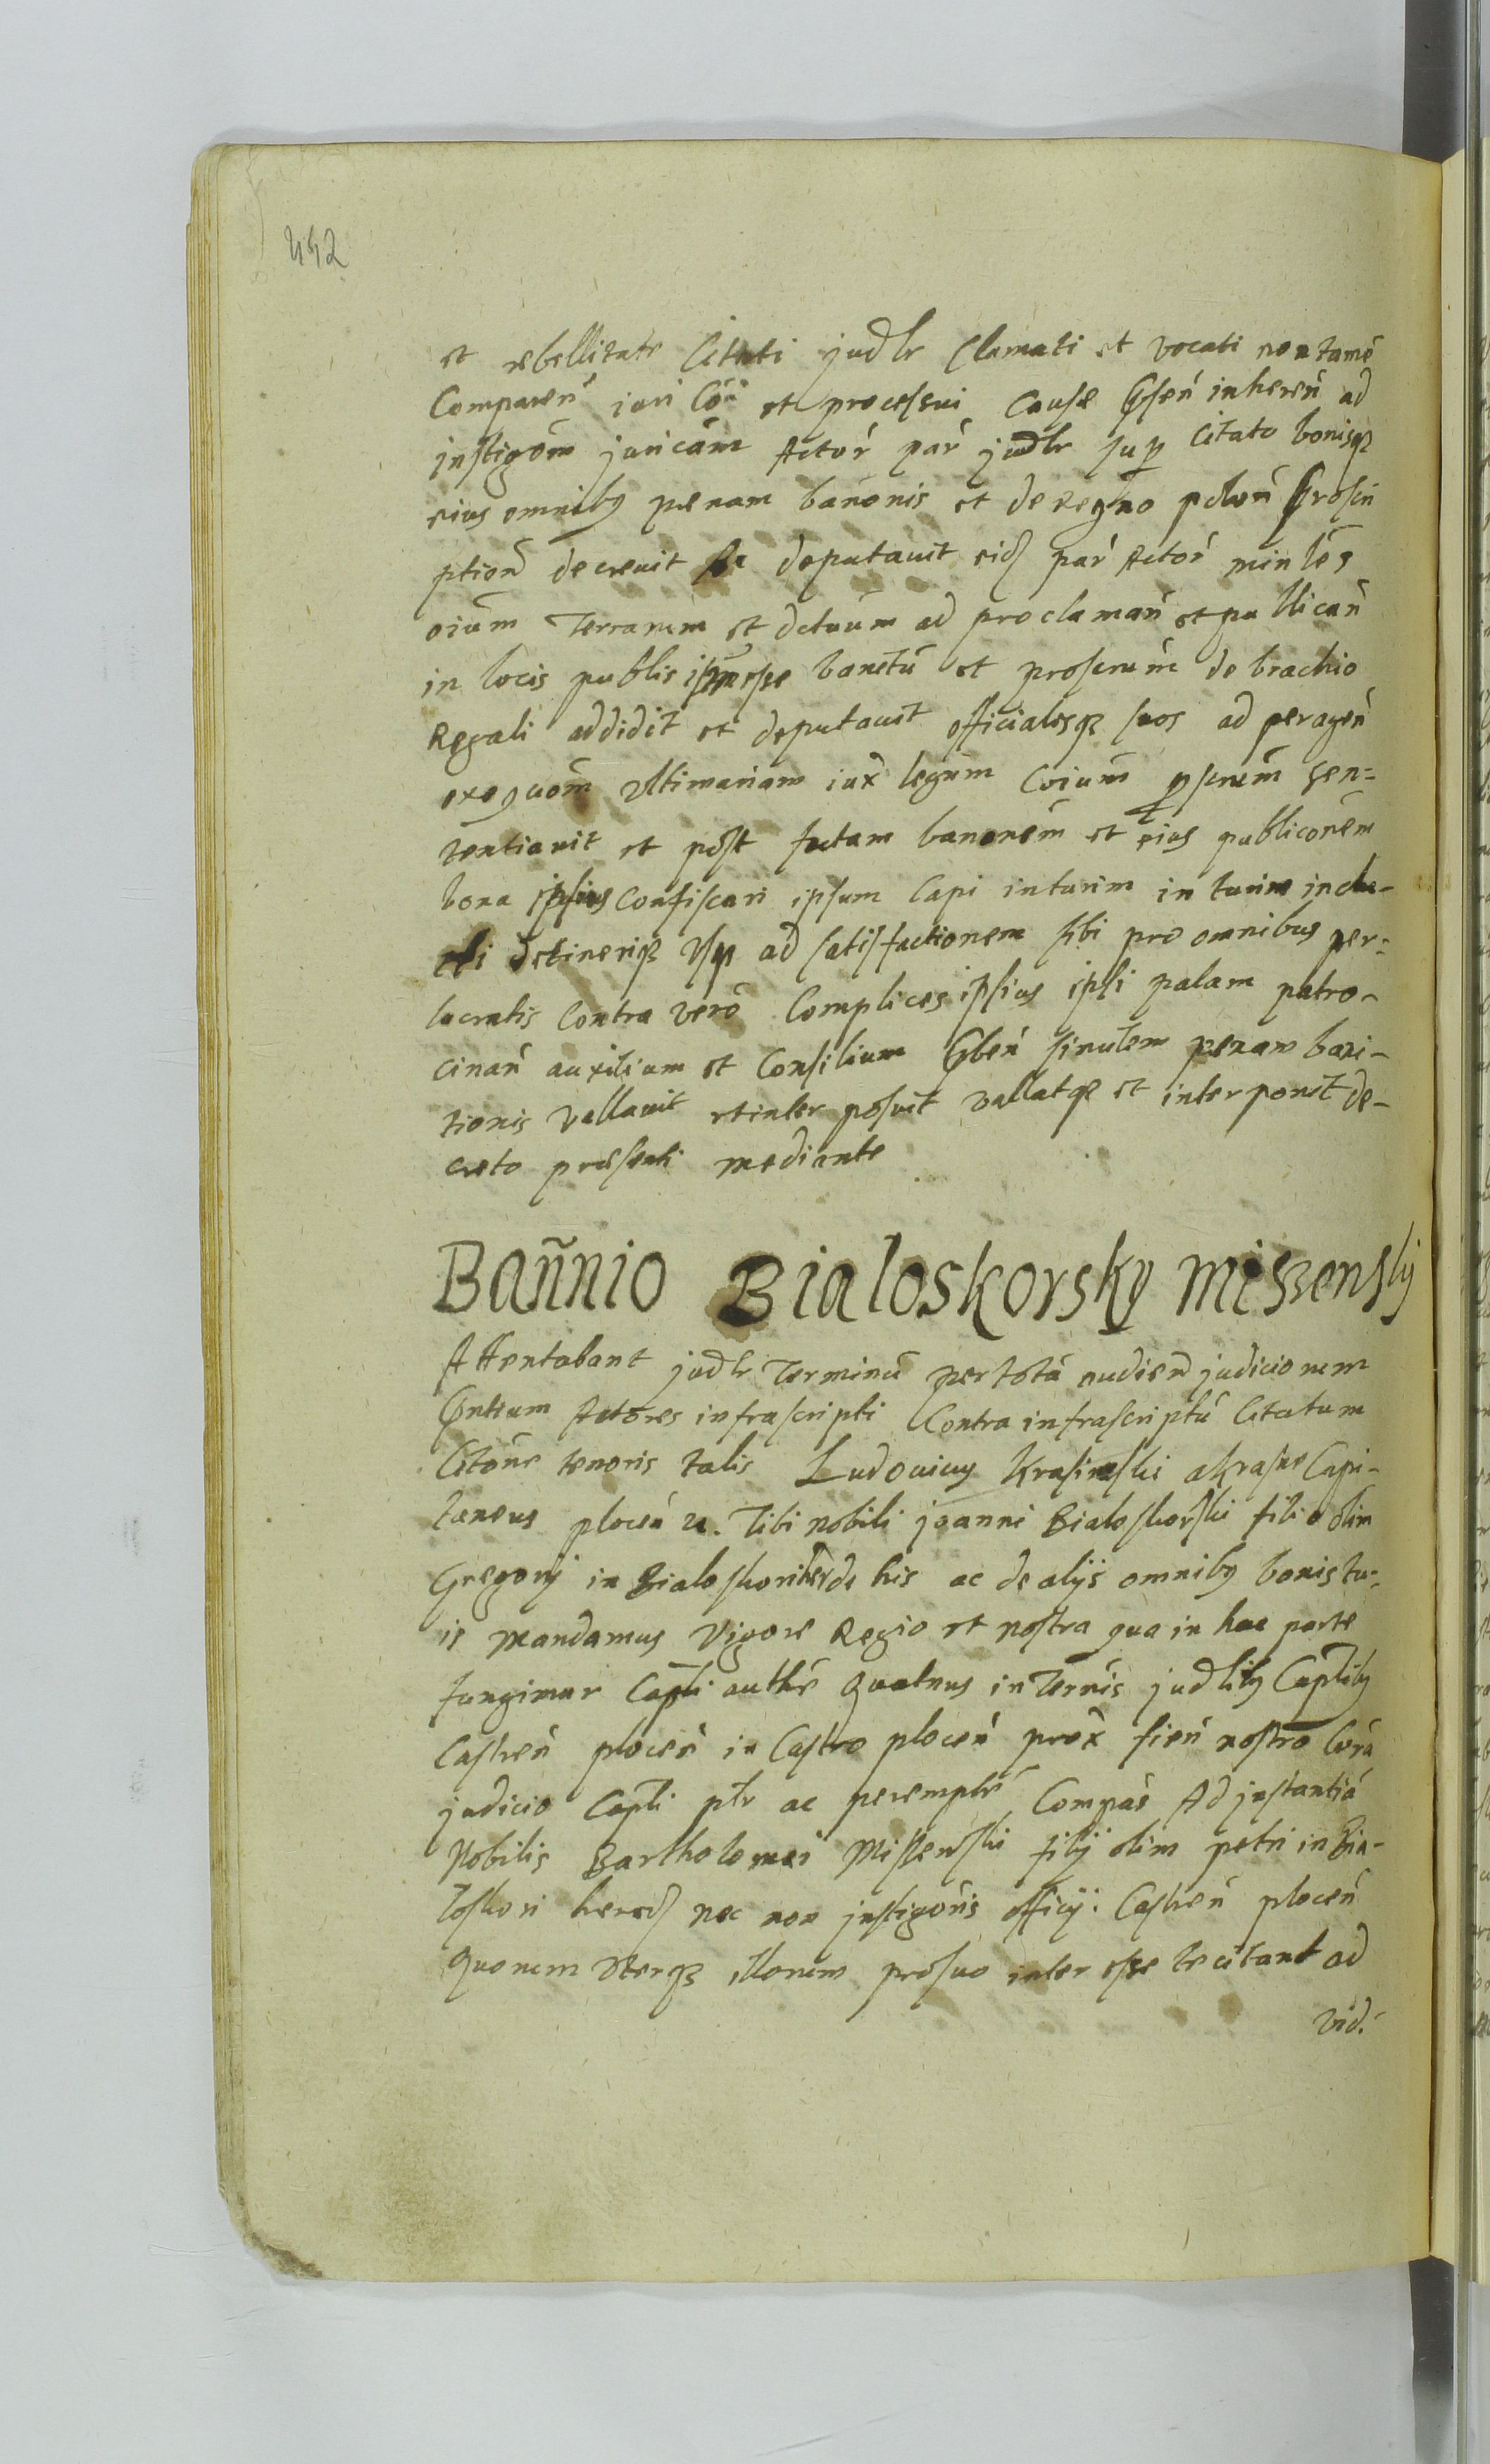 452
et rebellitate Citati judlr Clamati et vocati non tamē
Compareń iuri Cōi et processui Causæ pñseń inhereń ad
instigōm juricám Actor pár judlr sup Citato bonisq3
eius omnibg penam banonis et de Regno poloń proscri
ptioń decrevit Ac deputavit eid pár Actoŕ minles
oium Terrarum et dctuum ad proclamań et publicań
in locis publis ipsum esse banitū et proscrūm de brachio
Regali addidit et deputavit officialesq3 suos ad perageń
exeqūom ultimariam iux legum Coium pscrūm sen=
tentiavit et post factam banonem et eius publiconem
bona ipsius Confiscari ipsum Capi in turim in turim inclu-
di detineriq3 usq3 ad satisfactionem sibi pro omnibus per-
lucratis Contra vero Complices ipsius ipsi palam patro-
cinań auxilium et Consilium pbeń similem penam bani-
tionis vallavit et inter posuit vallatq3 et interponit de-
creto præsenti mediante
Bañnio Bialoskorsky Misszensky
Attentabant judlr Terminū per totā audień judiciorum
pñtium Actores infrascripti Contra infrascriptū Citatum
Citōne tenoris talis Ludovicus Krasinski a Krasne Capi-
taneus ploceń n. Tibi nobili joanni Bialoskorski filio olim
Gregorij in Bialoskori herd de his ac de alijs omnibg bonis tu-
is Mandamus Vigore Regio et nostra qua in hac parte
fungimur Capli authē Quatnus in Ternis judlibg Caplibg
Castreń ploceń in Castro ploceń prox fień nostro Corā
judicio Capli ptr ac peremptē Compás Ad jnstantiā
Nobilis Bartholomei Missenski filij olim petri in Bia-
loskori hered nec non jnstigoris officij Castreń ploceń
Quorum Uterq3 illorum pro suo inter esse te citant ad
vid.